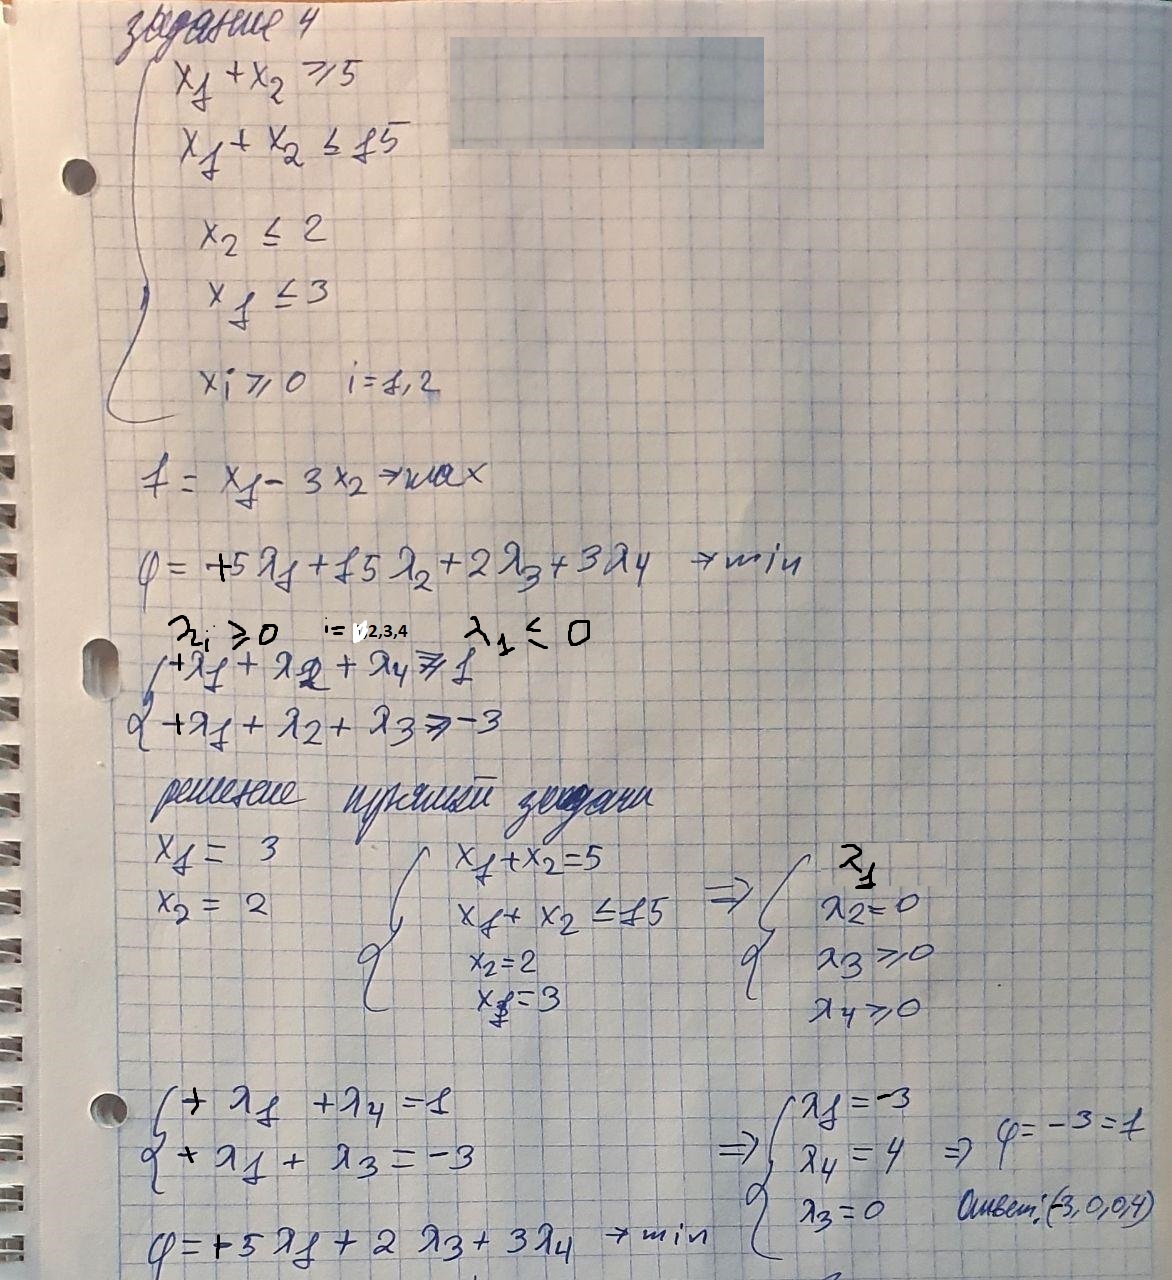 задание 4
x1 + x2 ≥ 5
x1 + x2 ≤ 15
x2 ≤ 2
x1 ≤ 3
xi ≥ 0 i = 1,2
f = x1 - 3x2 → max
φ = +5λ1 + 15λ2 + 2λ3 + 3λ4 → min
λi ≥ 0 i= ,2,3,4 λ1 ≤ 0
+λ1 + λ2 + λ4 ≥ 1
+λ1 + λ2 + λ3 ≥ -3
решение прямой задачи
x1 = 3
x2 = 2
x1 + x2 = 5
x1 + x2 ≤ 15
x2 = 2
x1 = 3
⇒
λ1
λ2 = 0
λ3 ≥ 0
λ4 ≥ 0
+ λ1 + λ4 = 1
+ λ1 + λ3 = -3
φ = +5λ1 + 2λ3 + 3λ4 → min
⇒
λ1 = -3
λ4 = 4
λ3 = 0
⇒ φ = -3 = 1
Ответ: (-3, 0, 0, 4)